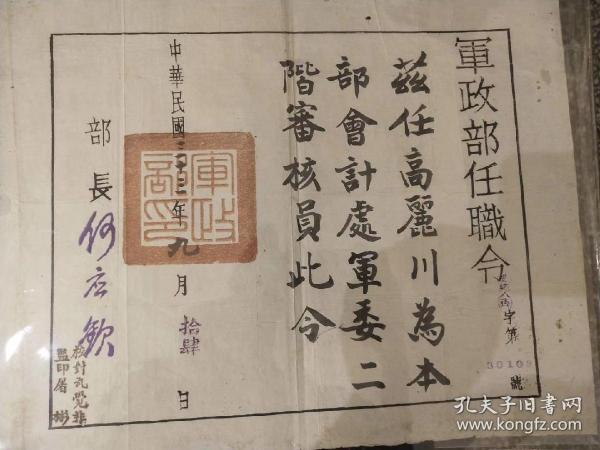 軍政部任職令
字第30109號
茲任高麗川為本
部會計處軍委二
階審核員此令
中華民國三十三年九月拾肆日
軍政
部印
部長何应欽
校對孔覺非
監印屠彬
孔夫子旧书网
www.kongfz.com